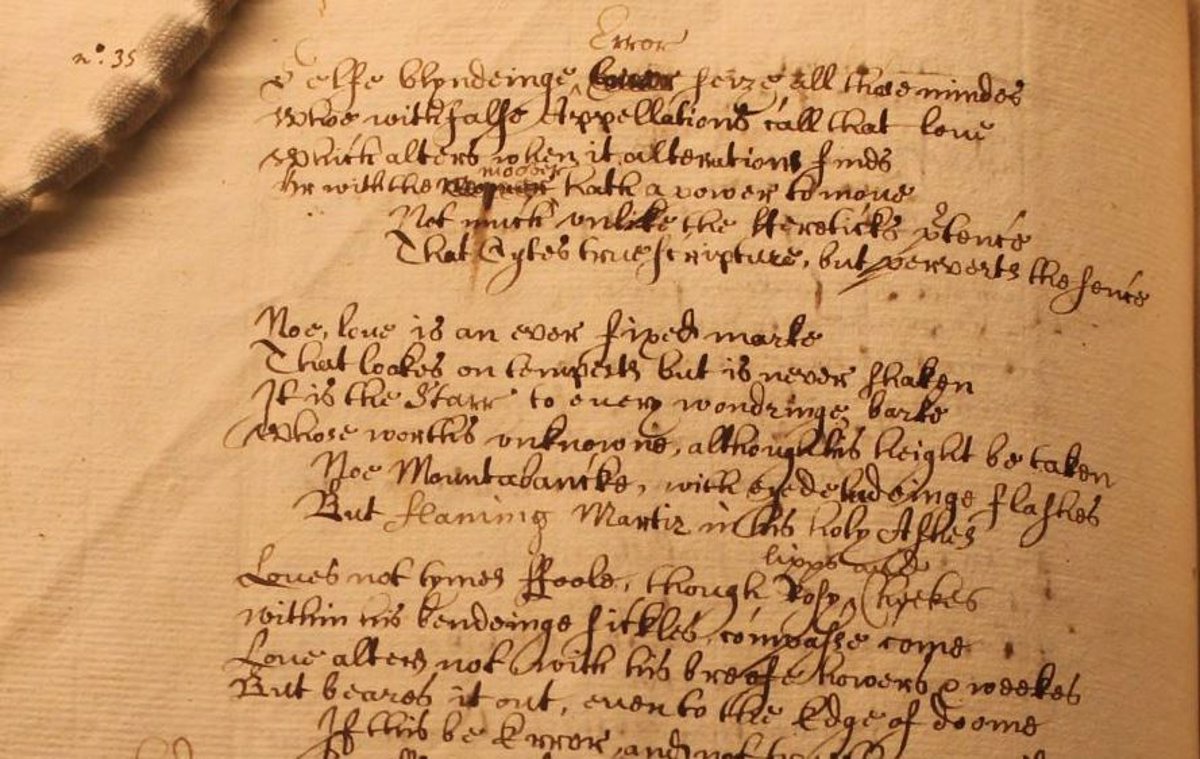 Error
n⁰: 35
Selfe blyndeinge seize all those mindes
Whoe with false Appellations call that love
Which alters when it alterations finds
mover
Or with the hath a power to move
Not much unlike the Hereticks p̃tence
That Cytes true scripture, but perverts the sence
Noe, love is an ever fixed marke
That lookes on tempests but is never shaken
It is the Starr to every wondringe barke
Whose worths unknowne, although his height be taken
Noe Mountabancke, with eyedeludeinge flashes
But flaming Martir in his holy Ashes
lipps and
Loves not tymes ffoole, though Rosy Cheekes
within his bendeinge sickles, compasse come
Love alters not with his breefe howers & weekes
But beares it out, even to the Edge of doome
If this be Error and not